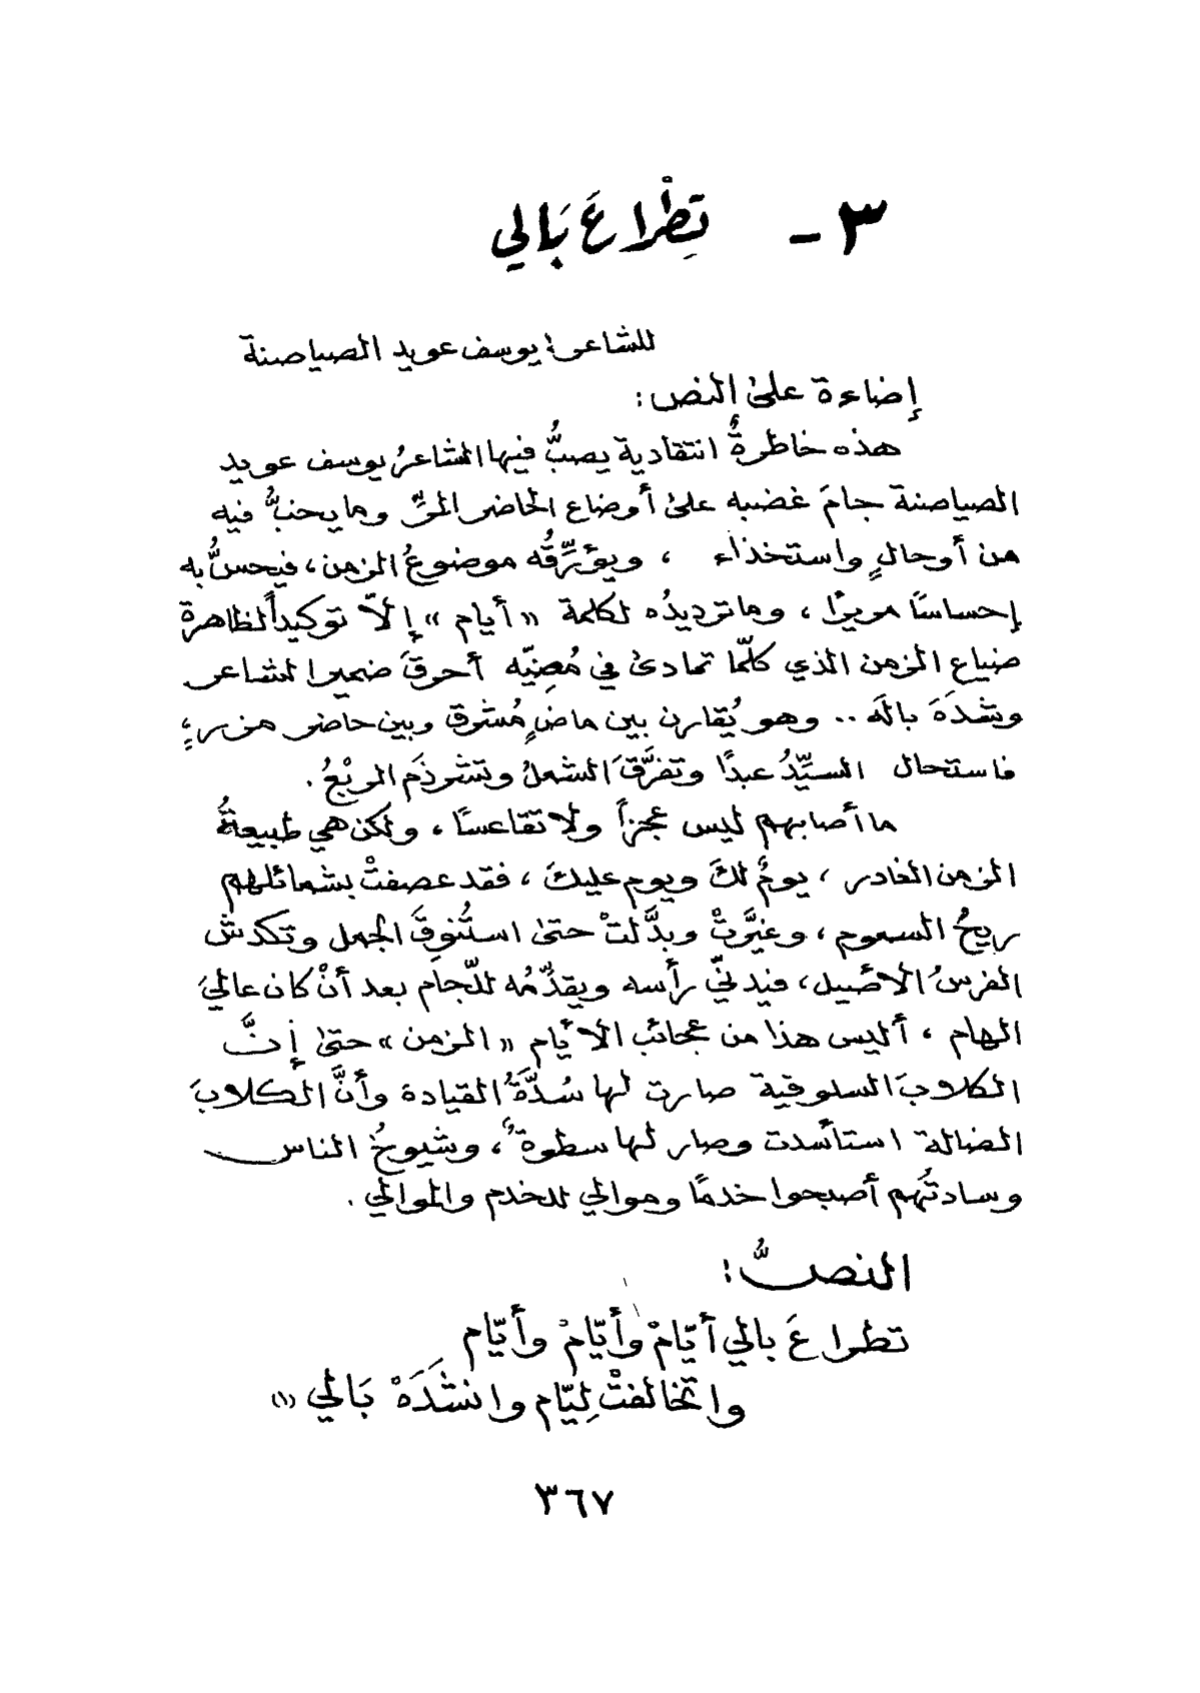 ٣ - تِطْرا عَ بَالي
للشاعر : يوسف عويد الصياصنة
إضاءة على النص :
هذه خاطرةٌ انتقادية يصبُّ فيها الشاعرُ يوسف عويد
الصياصنة جامَ غضبه على أوضاع الحاضر المرِّ وما يحبُّ فيه
من أوحالٍ واستخذاء ، ويؤرِّقُه موضوعُ الزمن ، فيحسُّ به
إحساسًا مريرًا ، وما ترديدُه لكلمة « أيام » إلاّ توكيداً لظاهرة
ضياع الزمن الذي كلّما تمادى في مُضِيّه أحرقَ ضمير الشاعر
وشدَهَ بالَه .. وهو يُقارن بين ماضٍ مُشرق وبين حاضر مزرٍ ،
فاستحال السيِّدُ عبدًا وتفرَّقَ الشملُ وتشرذَم الربْعُ .
ما أصابهم ليس عجزاً ولا تقاعسًا ، ولكن هي طبيعةُ
الزمن الغادر ، يومٌ لكَ ويوم عليكَ ، فقد عصفتْ بشمائلهم
ريحُ السموم ، وغيَّرتْ وبدَّلتْ حتى استُنوِقَ الجمل وتكدش
الفرسُ الأصيل ، فيدنّي رأسه ويقدِّمُه للّجام بعد أنْ كان عاليَ
الهام ، أليس هذا من عجائب الأيام « الزمن » حتى إنَّ
الكلابَ السلوقية صارت لها سُدَّةُ القيادة وأنَّ الكلابَ
الضالة استأسدت وصار لها سطوةٌ ، وشيوخُ الناس
وسادتُهم أصبحوا خدمًا وموالي للخدم والموالي .
النصُّ :
تطرا عَ بالي أيّامْ وأيّامْ وأيّام
واتخالفتْ لِيّام وانشَدَهْ بَالي (١)
٣٦٧